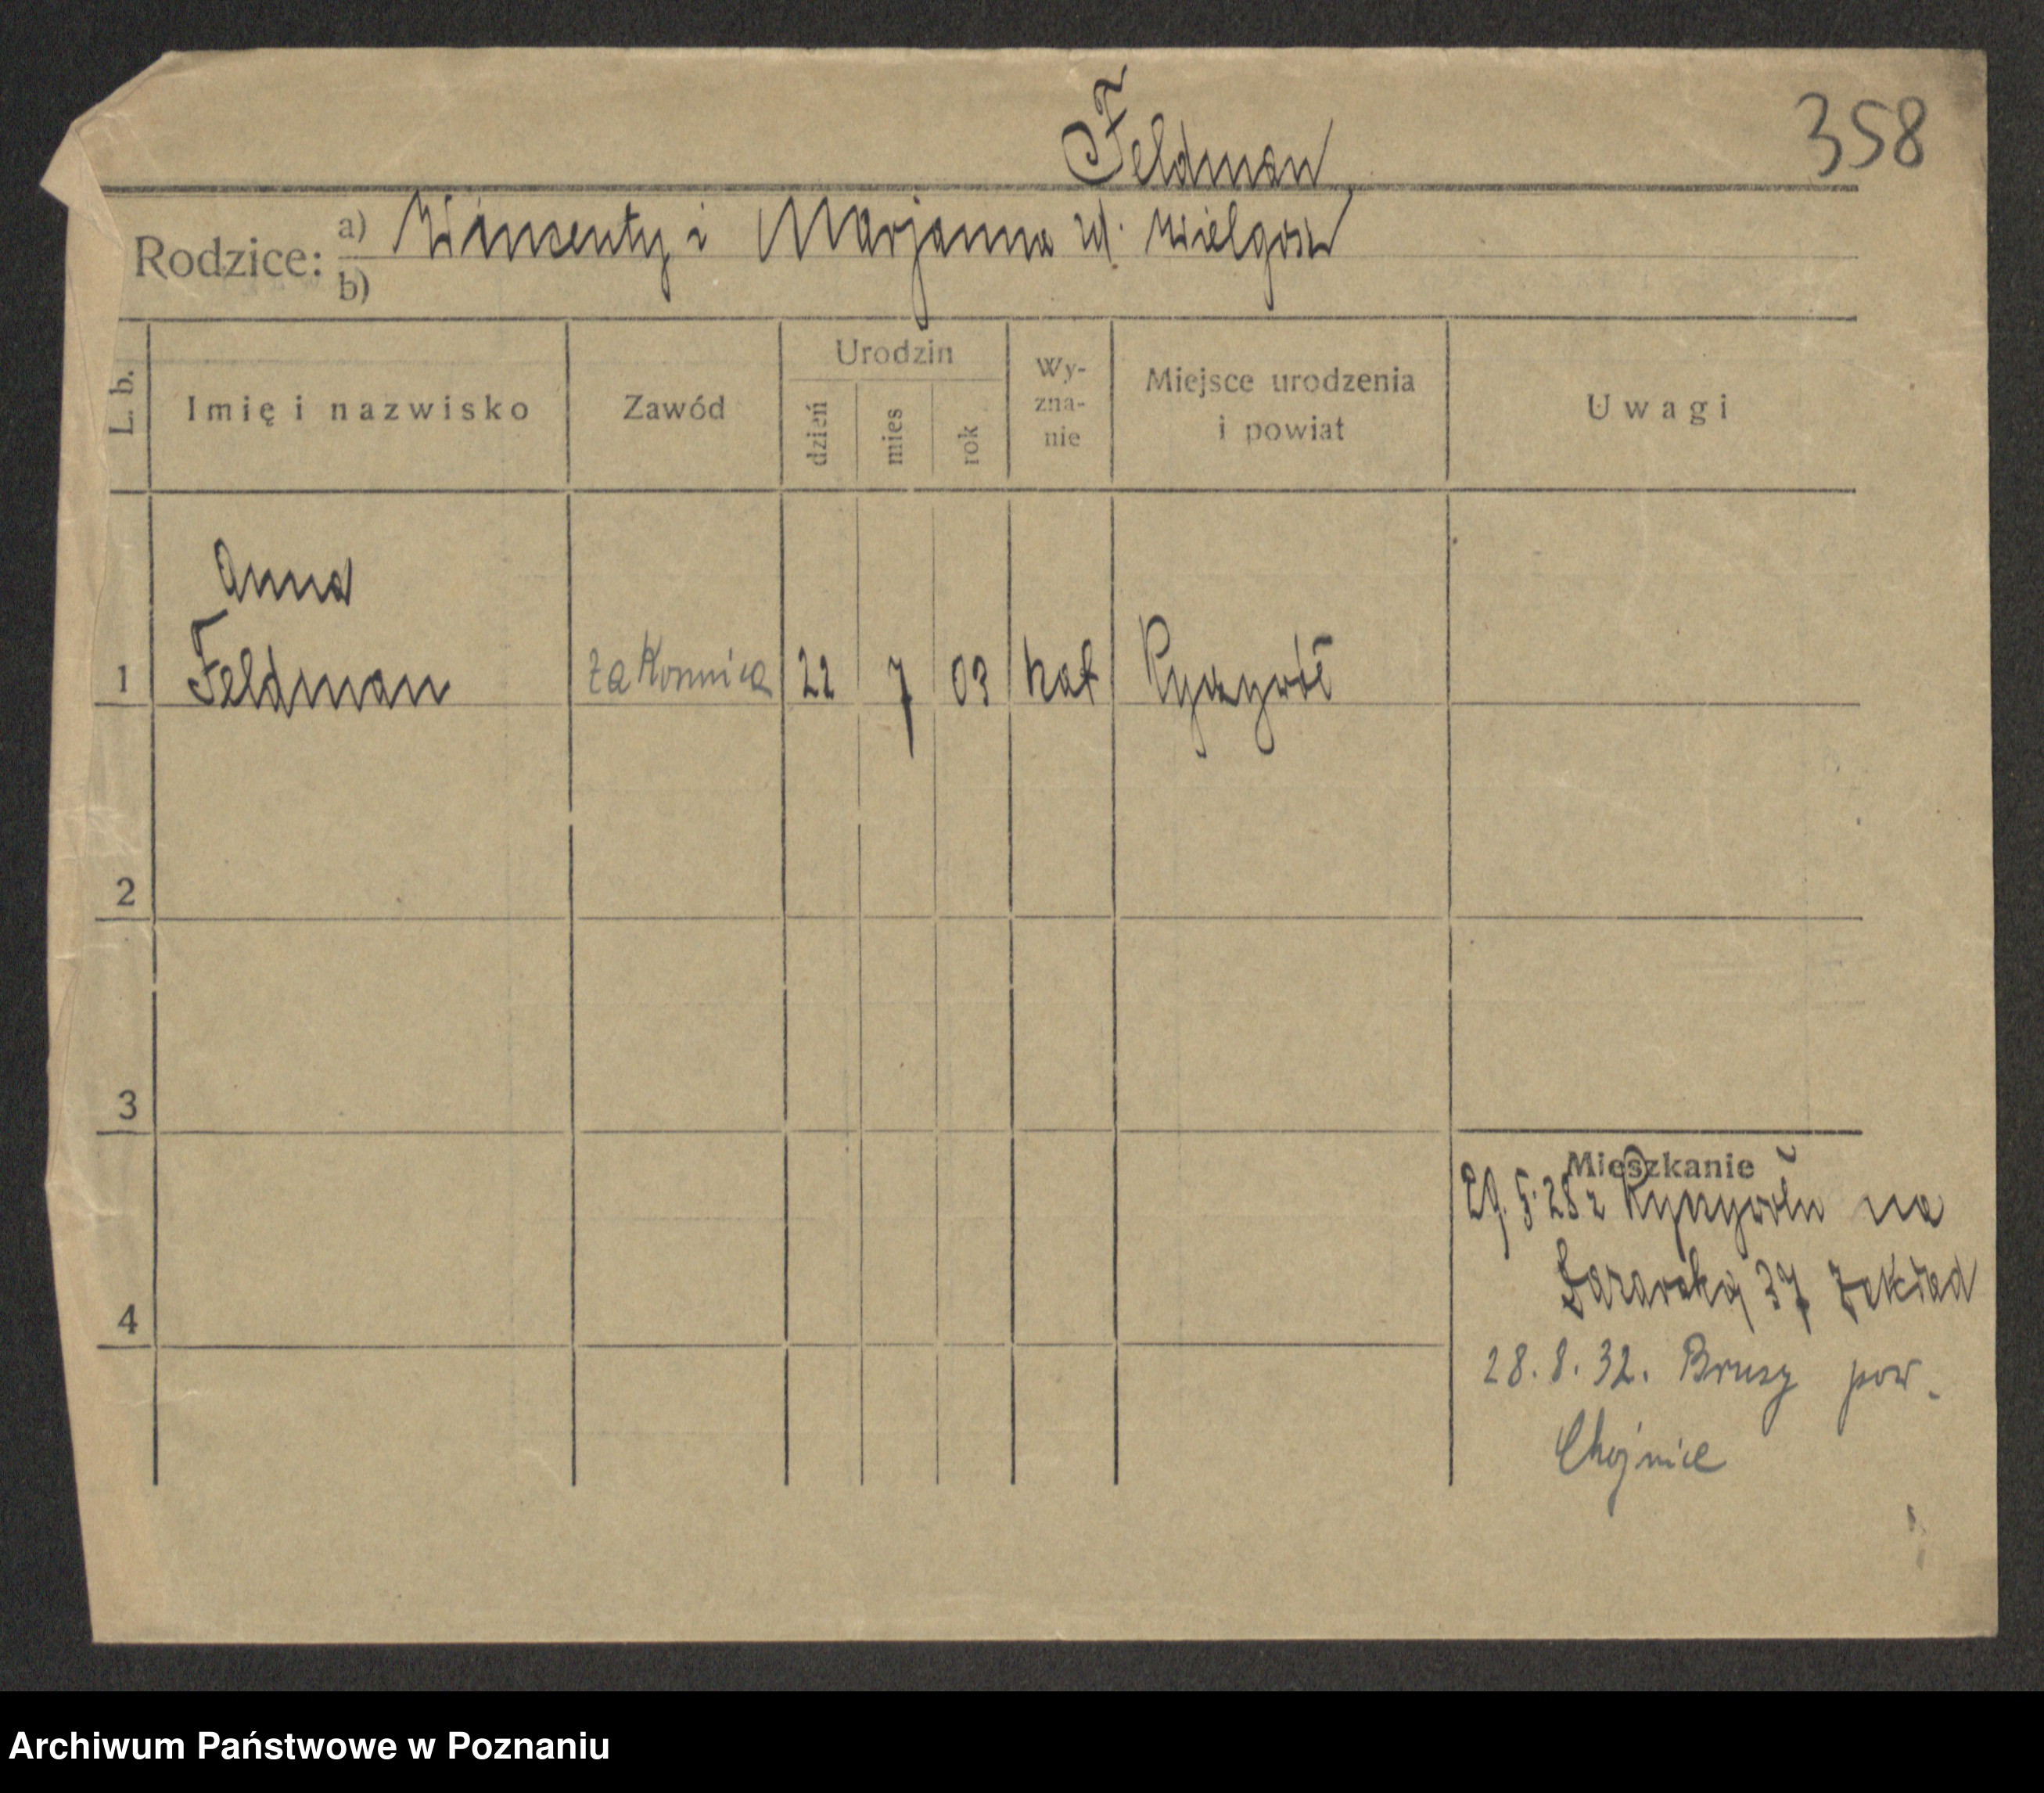 Feldman
358
Rodzice: a) Wincenty i Marjanna zd. Wielgosz
b)
L. b.
Imię i nazwisko
Zawód
Urodzin
dzień
mies
rok
Wy-
zna-
nie
Miejsce urodzenia
i powiat
Uwagi
Anna
1 Feldman zakonnica 22 7 03 kat Ryczywół
2
3
Mieszkanie
29.5.28 z Ryczywołu na
4
37 Zakład
28.8.32. Brusy pow.
Chojnice
Archiwum Państwowe w Poznaniu